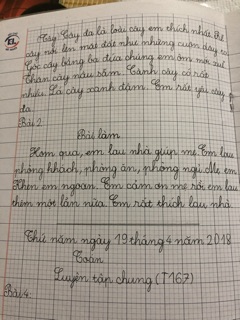 Tây. Cây đa là loài cây em thích nhất. Rễ
cây nổi lên mặt đất như những cuộn dây
Gốc cây bằng ba đứa chúng em ôm mới xuể
Thân cây nâu sẫm. Cành cây có rất
nhiều. Lá cây xanh đậm. Em rất yêu cây
đa.
Bài 2
Bài làm
Hôm qua, em lau nhà giúp mẹ. Em lau
phòng khách, phòng ăn, phòng ngủ. Mẹ em
khen em ngoan. Em cảm ơn mẹ rồi em lau
thêm một lần nữa. Em rất thích lau nhà
Thứ năm ngày 19 tháng 4 năm 2018
Toán
Luyện tập chung (T167)
Bài 4: